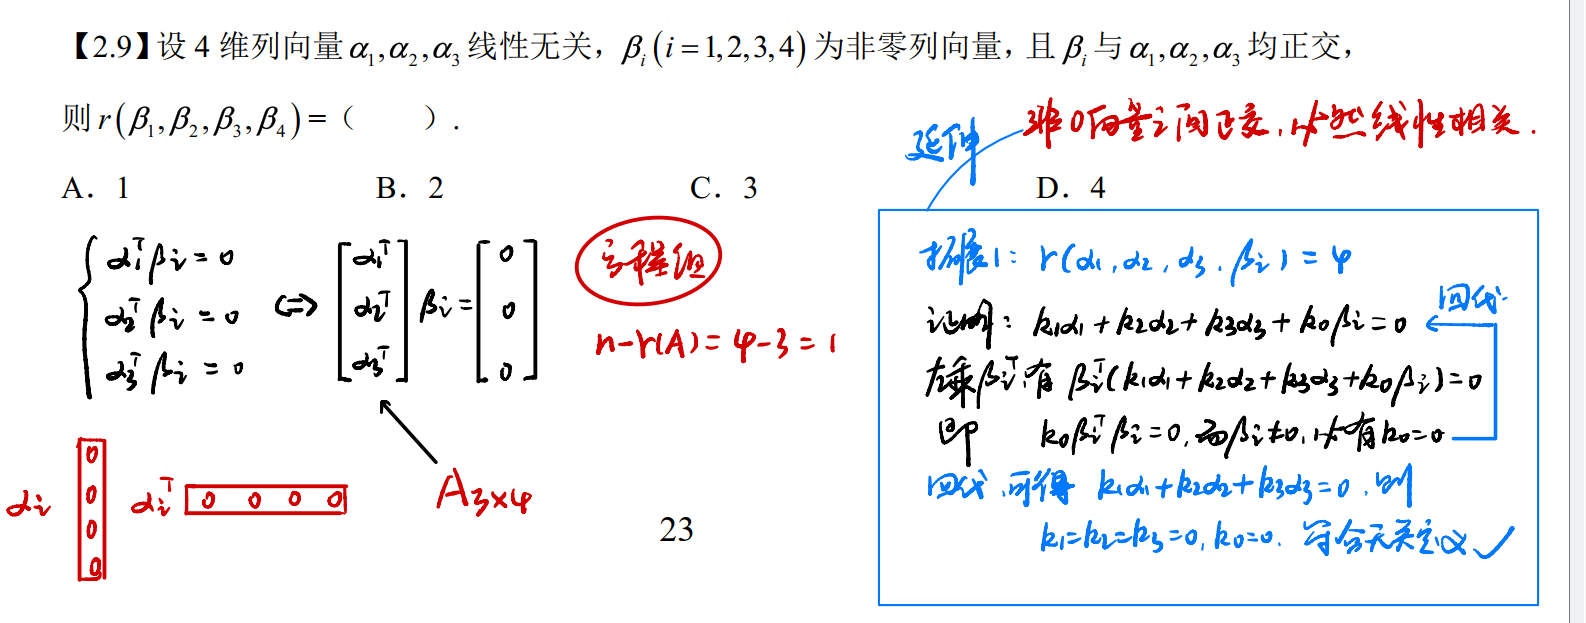 【2.9】设 4 维列向量 α₁,α₂,α₃ 线性无关，βᵢ(i=1,2,3,4) 为非零列向量，且 βᵢ 与 α₁,α₂,α₃ 均正交，
则 r(β₁,β₂,β₃,β₄)=（　　）.
延伸
非0向量之间正交，必然线性相关.
A. 1　B. 2　C. 3　D. 4
{ α₁ᵀβᵢ=0
α₂ᵀβᵢ=0
α₃ᵀβᵢ=0
⇔ [α₁ᵀ α₂ᵀ α₃ᵀ] βᵢ = [0 0 0]
方程组
n-r(A)=4-3=1
A₃ₓ₄
αᵢ 0 0 0 0
αᵢᵀ 0 0 0 0
拓展1: r(α₁,α₂,α₃,βᵢ)=4
证明: k₁α₁+k₂α₂+k₃α₃+k₀βᵢ=0
回代
左乘βᵢᵀ,有 βᵢᵀ(k₁α₁+k₂α₂+k₃α₃+k₀βᵢ)=0
即 k₀βᵢᵀβᵢ=0,而βᵢ≠0,必有k₀=0
回代,可得 k₁α₁+k₂α₂+k₃α₃=0,则
k₁=k₂=k₃=0,k₀=0. 符合无关定义✓
23